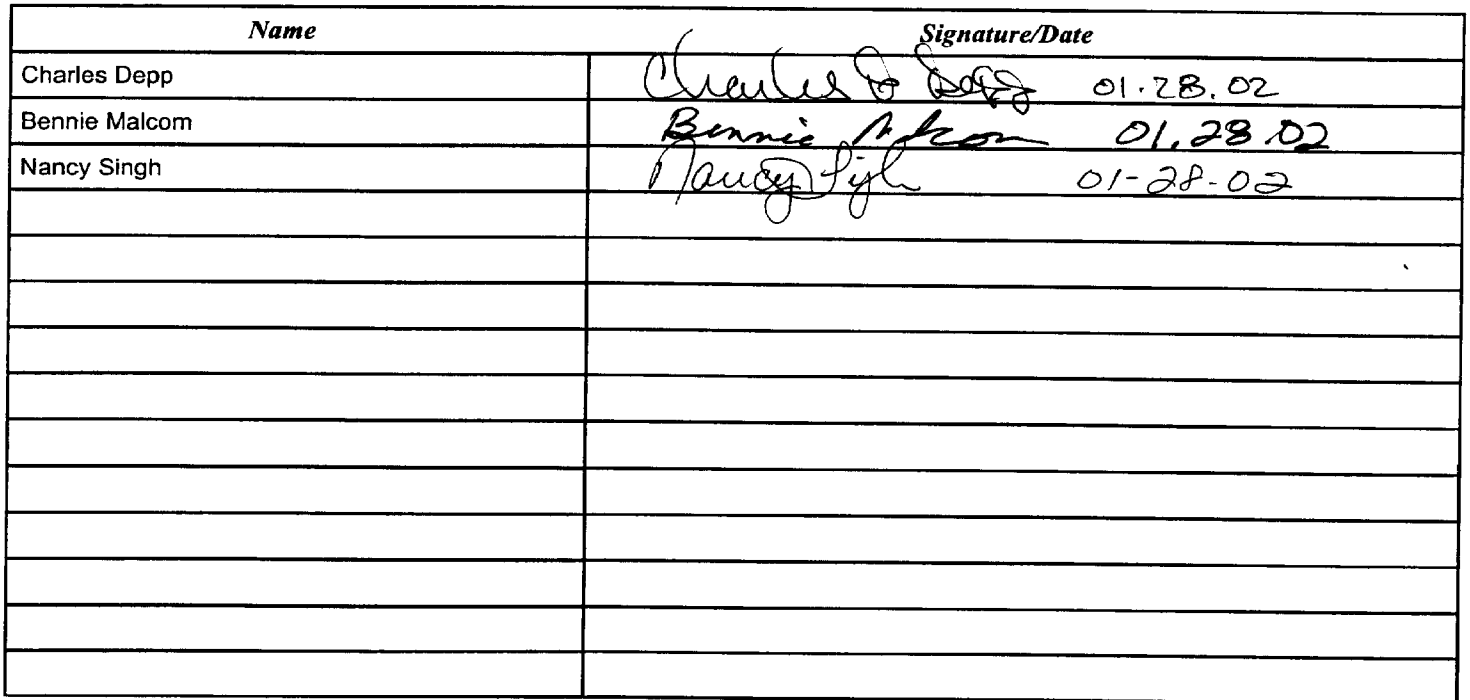 Name Signature/Date
Charles Depp Charles D Depp 01.28.02
Bennie Malcom Bennie Malcom 01.28.02
Nancy Singh Nancy Singh 01-28-02